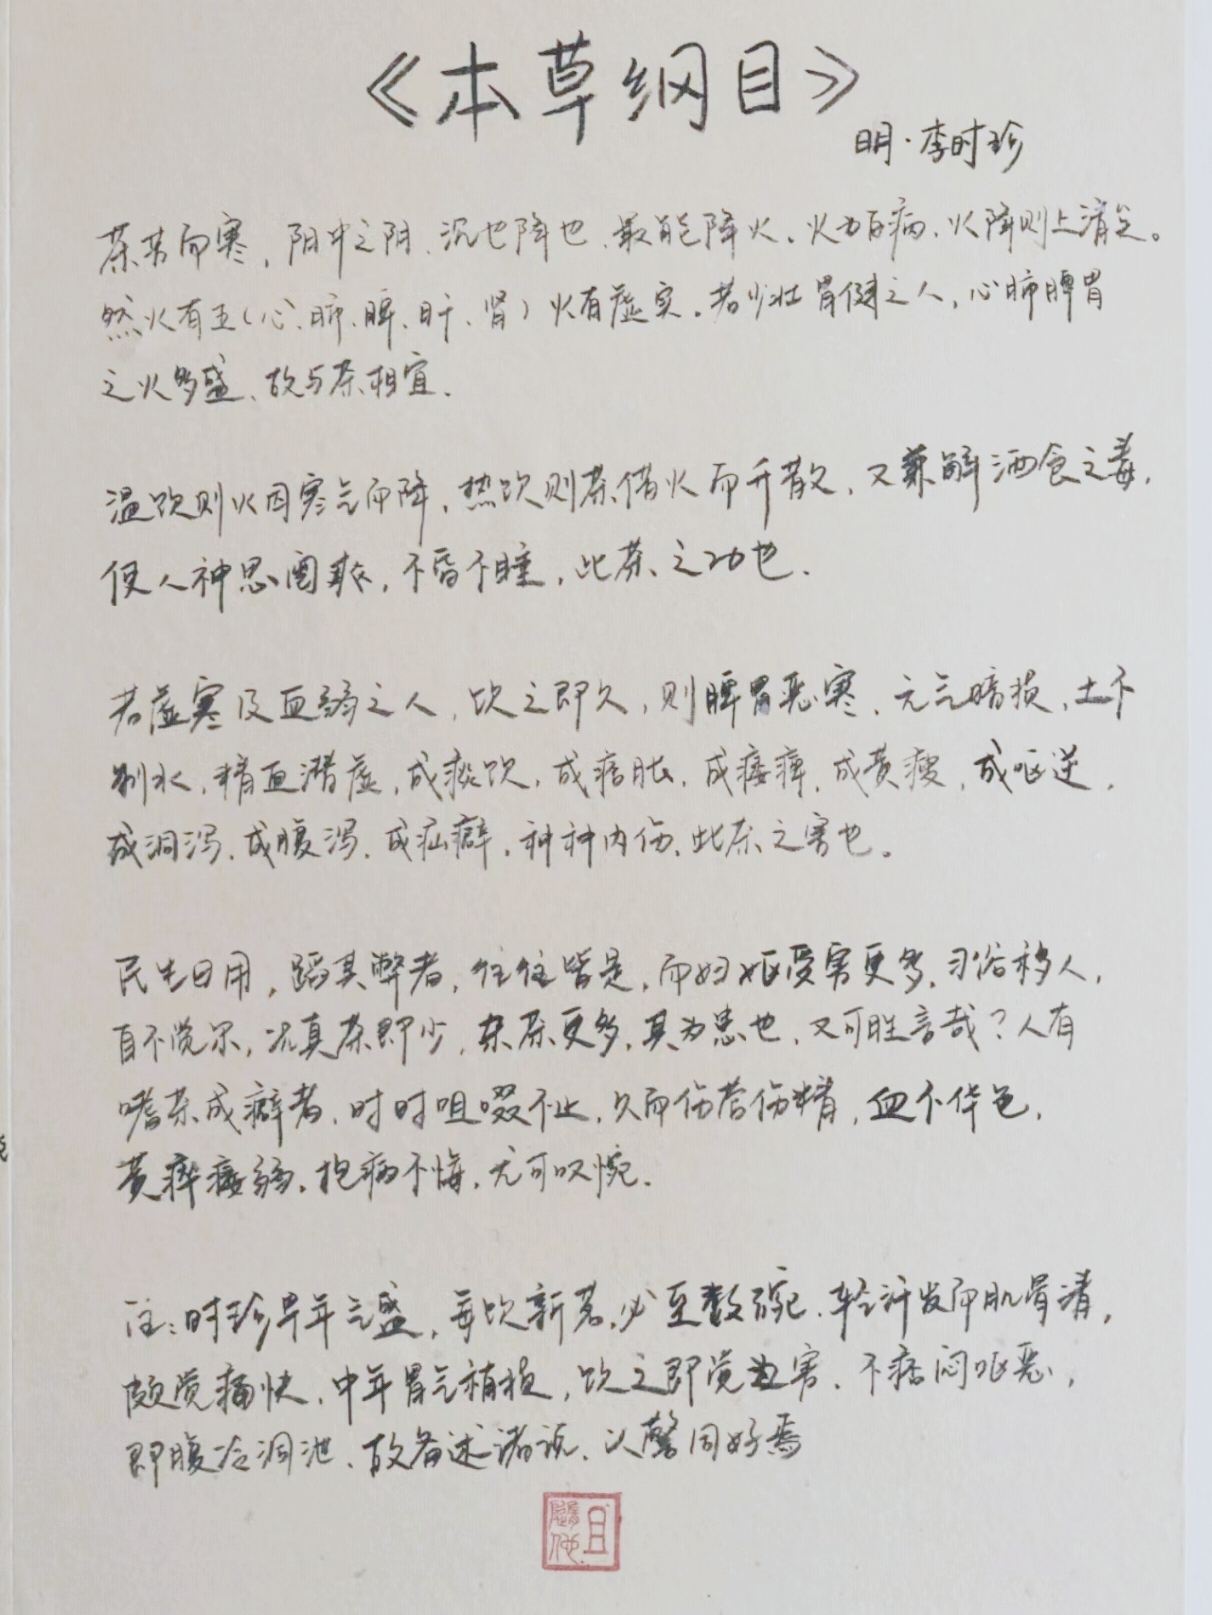 《本草纲目》
明·李时珍
茶苦而寒，阴中之阴、沉也降也、最能降火。火为百病、火降则上清矣。
然火有五（心、肺、脾、肝、肾）火有虚实。若少壮胃健之人，心肺脾胃
之火多盛、故与茶相宜.
温饮则火因寒气而降，热饮则茶借火而升散、又兼解酒食之毒，
使人神思闿爽，不昏不睡，此茶之功也.
若虚寒及血弱之人，饮之即久，则脾胃恶寒、元气暗损，土不
制水，精血潜虚，成痰饮，成痞胀，成痿痹，成黄瘦，成呕逆，
成洞泻、成腹泻、成疝癖，种种内伤、此茶之害也。
民生日用，蹈其弊者，往往皆是，而妇妪受害更多，习俗移人，
自不觉尔，况真茶即少，杂茶更多，其为患也、又可胜言哉？人有
嗜茶成癖者，时时咀啜不止，久而伤营伤精，血不华色，
黄瘁痿弱，抱病不悔，尤可叹惋.
注：时珍早年气盛，每饮新茗，必至数碗、轻汗发而肌骨清，
颇觉痛快、中年胃气稍损，饮之即觉为害、不痞闷呕恶，
即腹冷洞泄、故备述诸说、以警同好焉
且